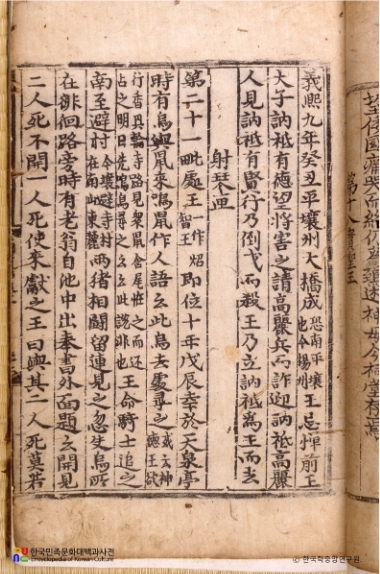 望倭國痛哭而終仍爲鵄述神母今祠堂存焉
第十八實聖王
義熙九年癸丑平壤州大橋成恐南平壤也今楊州王忌憚前王
大子訥祗有德望將害之請高麗兵而詐迎訥祗高麗
人見訥祗有賢行乃倒戈而殺王乃立訥祗爲王而去
射琴匣
第二十一毗處王一作炤智王即位十年戊辰幸於天泉亭
時有烏與鼠來鳴鼠作人語云此烏去處尋之或云神德王欲
行香興輪寺路見衆鼠含尾怪之而还占之明日先鳴烏尋之云云此説非也王命騎士追之
南至避村今壤避寺村在南山東麓兩猪相鬪留連見之忽失烏所
在徘徊路旁時有老翁自池中出奉書外面題云開見
二人死不開一人死使來獻之王曰與其二人死莫若
한국민족문화대백과사전
Encyclopedia of Korean Culture
© 한국학중앙연구원